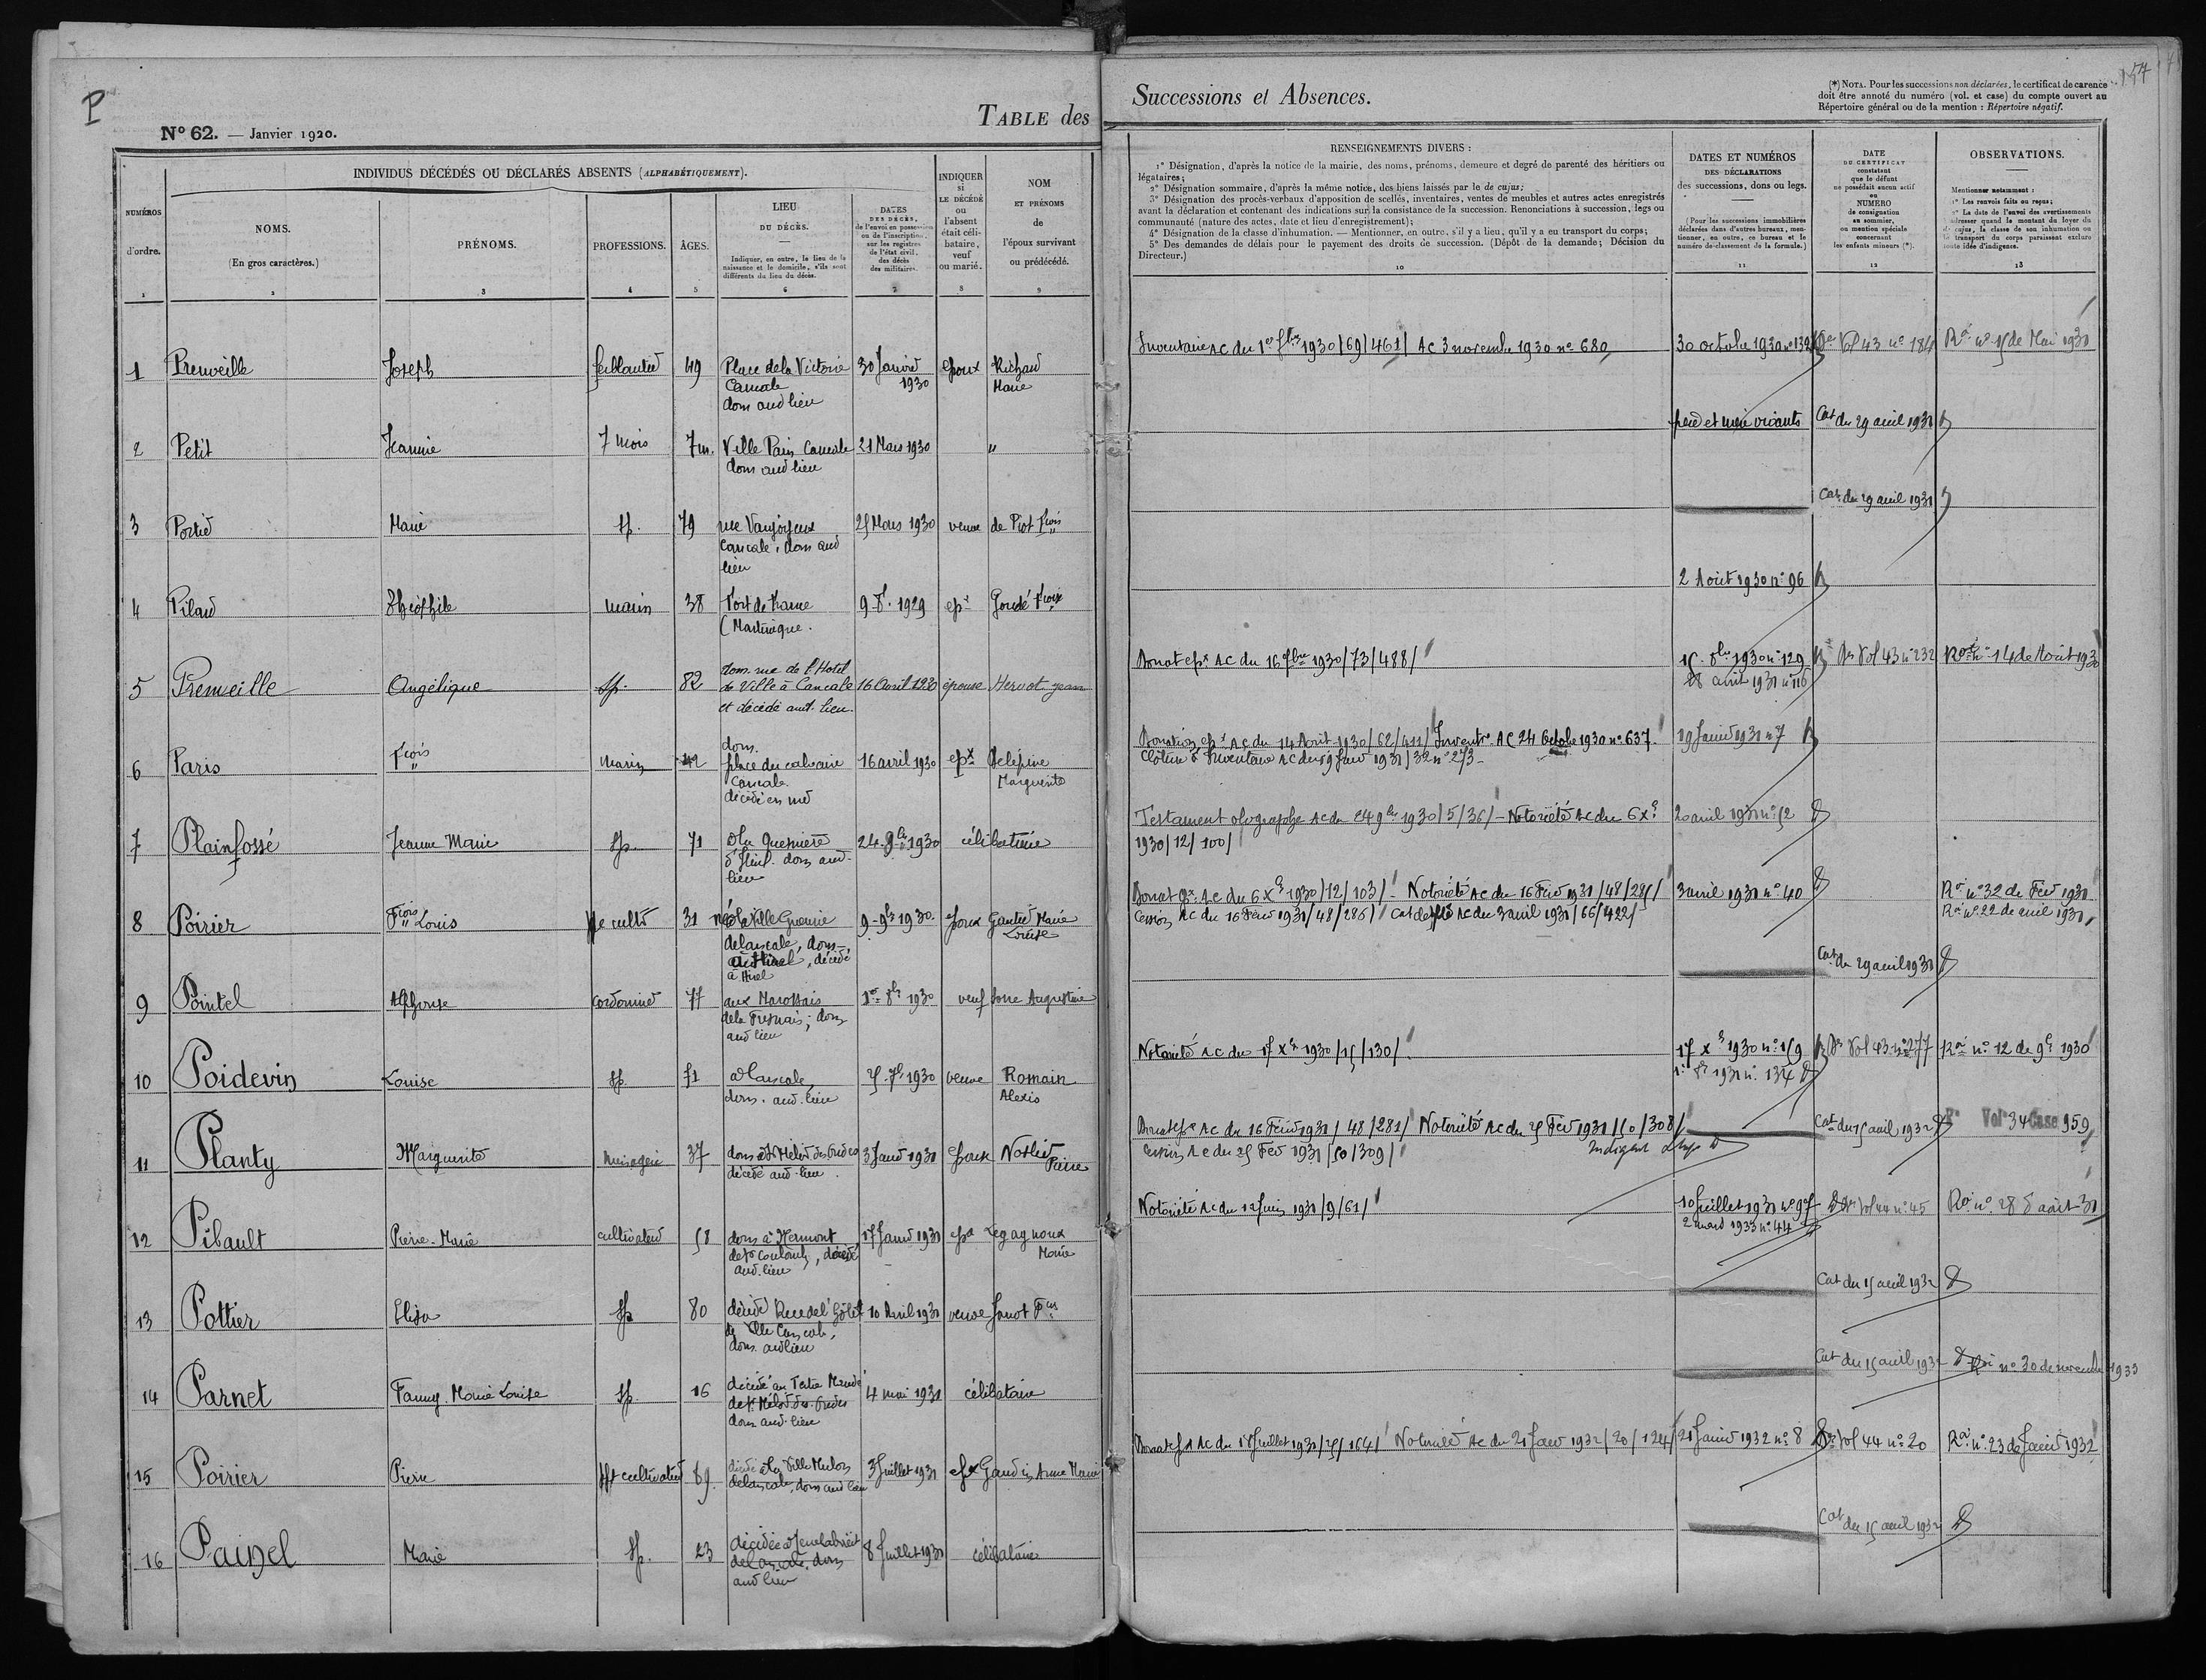 P
157
N° 62. — Janvier 1920.
TABLE des
Successions et Absences.
(*) NOTA. Pour les successions non déclarées, le certificat de carence
doit être annoté du numéro (vol. et case) du compte ouvert au
Répertoire général ou de la mention : Répertoire négatif.
INDIVIDUS DÉCÉDÉS OU DÉCLARÉS ABSENTS (ALPHABÉTIQUEMENT).
NUMÉROS
d'ordre.
NOMS.
(En gros caractères.)
PRÉNOMS.
PROFESSIONS.
ÂGES.
LIEU
DU DÉCÈS.
Indiquer, en outre, le lieu de la
naissance et le domicile, s'ils sont
différents du lieu du décès.
DATES
DES DÉCÈS,
de l'envoi en possession
ou de l'inscription,
sur les registres
de l'état civil,
des décès
des militaires.
INDIQUER
si
LE DÉCÉDÉ
ou
l'absent
était céli-
bataire,
veuf
ou marié.
NOM
ET PRÉNOMS
de
l'époux survivant
ou prédécédé.
RENSEIGNEMENTS DIVERS :
1° Désignation, d'après la notice de la mairie, des noms, prénoms, demeure et degré de parenté des héritiers ou
légataires;
2° Désignation sommaire, d'après la même notice, des biens laissés par le de cujus;
3° Désignation des procès-verbaux d'apposition de scellés, inventaires, ventes de meubles et autres actes enregistrés
avant la déclaration et contenant des indications sur la consistance de la succession. Renonciations à succession, legs ou
communauté (nature des actes, date et lieu d'enregistrement);
4° Désignation de la classe d'inhumation. — Mentionner, en outre, s'il y a lieu, qu'il y a eu transport du corps;
5° Des demandes de délais pour le payement des droits de succession. (Dépôt de la demande; Décision du
Directeur.)
DATES ET NUMÉROS
DES DÉCLARATIONS
des successions, dons ou legs.
(Pour les successions immobilières
déclarées dans d'autres bureaux, men-
tionner, en outre, ce bureau et le
numéro de classement de la formule.)
DATE
DU CERTIFICAT
constatant
que le défunt
ne possédait aucun actif
ou
NUMÉRO
de consignation
au sommier,
ou mention spéciale
concernant
les enfants mineurs (*).
OBSERVATIONS.
Mentionner notamment :
1° Les renvois faits ou reçus;
2° La date de l'envoi des avertissements
à adresser quand le montant du loyer du
de cujus, la classe de son inhumation ou
le transport du corps paraissent exclure
toute idée d'indigence.
1 2 3 4 5 6 7 8 9 10 11 12 13
1 Preuveille Joseph ferblantier 49 Place de la Victoire 30 Janvier époux Richard
Cancale 1930 Marie
dom aud lieu
Inventaire AC du 1er 1930/69/461/ AC 3 novembre 1930 n° 680 30 octobre 1930 n° 139 Vol 43 n° 184 n° 15 de Mai 1930
2 Petit Jeanne 7 mois 7 m. Ville Pain Cancale 21 Mars 1930 "
dom aud lieu
père et mère vivants Cat du 29 avril 1931
3 Portier Marie sp. 79 rue Vaujoyeux 25 Mars 1930 veuve de Piot Frois
Cancale, dom aud
lieu
Cat du 29 avril 1931
4 Pilard Théophile marin 38 Fort de France 9 8e 1929 epx Goudé
(Martinique.
2 Août 1930 n° 96
5 Preuveille Angélique sp. 82 dom. rue de l'Hotel
de Ville à Cancale 16 Avril 1930 épouse Hervot Jean
et décédé aud. lieu
Donat epx AC du 16 1930/73/488/ 15 8bre 1930 n° 129 Vol 43 n° 232 n° 14 de Août 1930
28 avril 1931 n° 110
6 Paris Frois Marin 42 dom.
place du calvaire 16 avril 1930 epx Delepine
Cancale Marguerite
décédé en mer
Donation epx AC du 14 Août 1930/62/411/ Inventre AC 24 Octobre 1930 n° 637 19 Janvier 1931 n° 7
Clôture d'Inventaire AC du 19 Janv 1931/32 n° 273
7 Plainfossé Jeanne Marie sp. 71 à la Quesnière 24 9bre 1930 célibataire
dom aud.
lieu
Testament olographe AC du 24 9bre 1930/5/36/ - Notoriété AC du 6 Xe 20 avril 1931 n° 52
1930/12/100/
8 Poirier Frois Louis cultr 31 9 9bre 1930 époux Gautier Marie
Louise
de Cancale, dom
décédé
à Hirel
Donat epx AC du 6 Xe 1930/12/103/ - Notoriété AC du 16 Févr 1931/48/285/ 3 avril 1931 n° 40 n° 32 de Févr 1931
Cession AC du 16 Févr 1931/48/286/ Cat de AC du 3 avril 1931/66/422/ n° 22 de avril 1931
9 Pointel Alphonse cordonnier 77 1er 8bre 1930 veuf Augustine
de la Fresnais, dom
aud lieu
Cat du 29 avril 1931
10 Poidevin Louise sp. 71 à Cancale 25 7bre 1930 veuve Romain
dom. aud. lieu Alexis
Notoriété AC du 17 Xe 1930/15/130/ 17 Xe 1930 n° 159 Vol 43 n° 277 n° 12 de 9e 1930
1931 n° 134
11 Planty Marguerite ménagère 37 3 Janvr 1931 époux
décédé aud. lieu Pierre
Donat epx AC du 16 Févr 1931/48/281/ Notoriété AC du 25 Févr 1931/50/308/ Cat du 15 avril 1932 Vol 34 Case 959
Cession AC du 25 Fév 1931/50/309/ Indigent
12 Pibault Pierre-Marie cultivateur 58 dom à Hermont 17 Janvr 1931 epx Legagnoux
de St Coulomb, décédé Marie
aud. lieu
Notoriété AC du 12 Juin 1931/9/61/ 10 Juillet 1931 n° 97 Vol 44 n° 45 n° 28 d'août 31
2 mars 1933 n° 44
13 Pottier Elisa sp. 80 décédé Rue de l'Hôtel 10 Avril 1931 veuve
de Ville Cancale,
dom. aud lieu
Cat du 15 avril 1932
14 Parnet Fanny Marie Louise sp. 16 décédé au Tertre 4 mai 1931 célibataire
dom aud. lieu
Cat du 15 avril 1932 n° 30 de novembre 1933
15 Poirier Pierre cultivateur 69 3 Juillet 1931 epx Gaudin Anne Marie
de Cancale, dom aud lieu
Donat epx AC du 18 Juillet 1931/25/164/ Notoriété AC du 21 Janv 1932/20/124/ 21 Janvier 1932 n° 8 Vol 44 n° 20 n° 23 de Janvier 1932
16 Painel Marie sp. 23 décédée à 8 Juillet 1931 célibataire
de Cancale, dom
aud lieu
Cat du 15 avril 1932